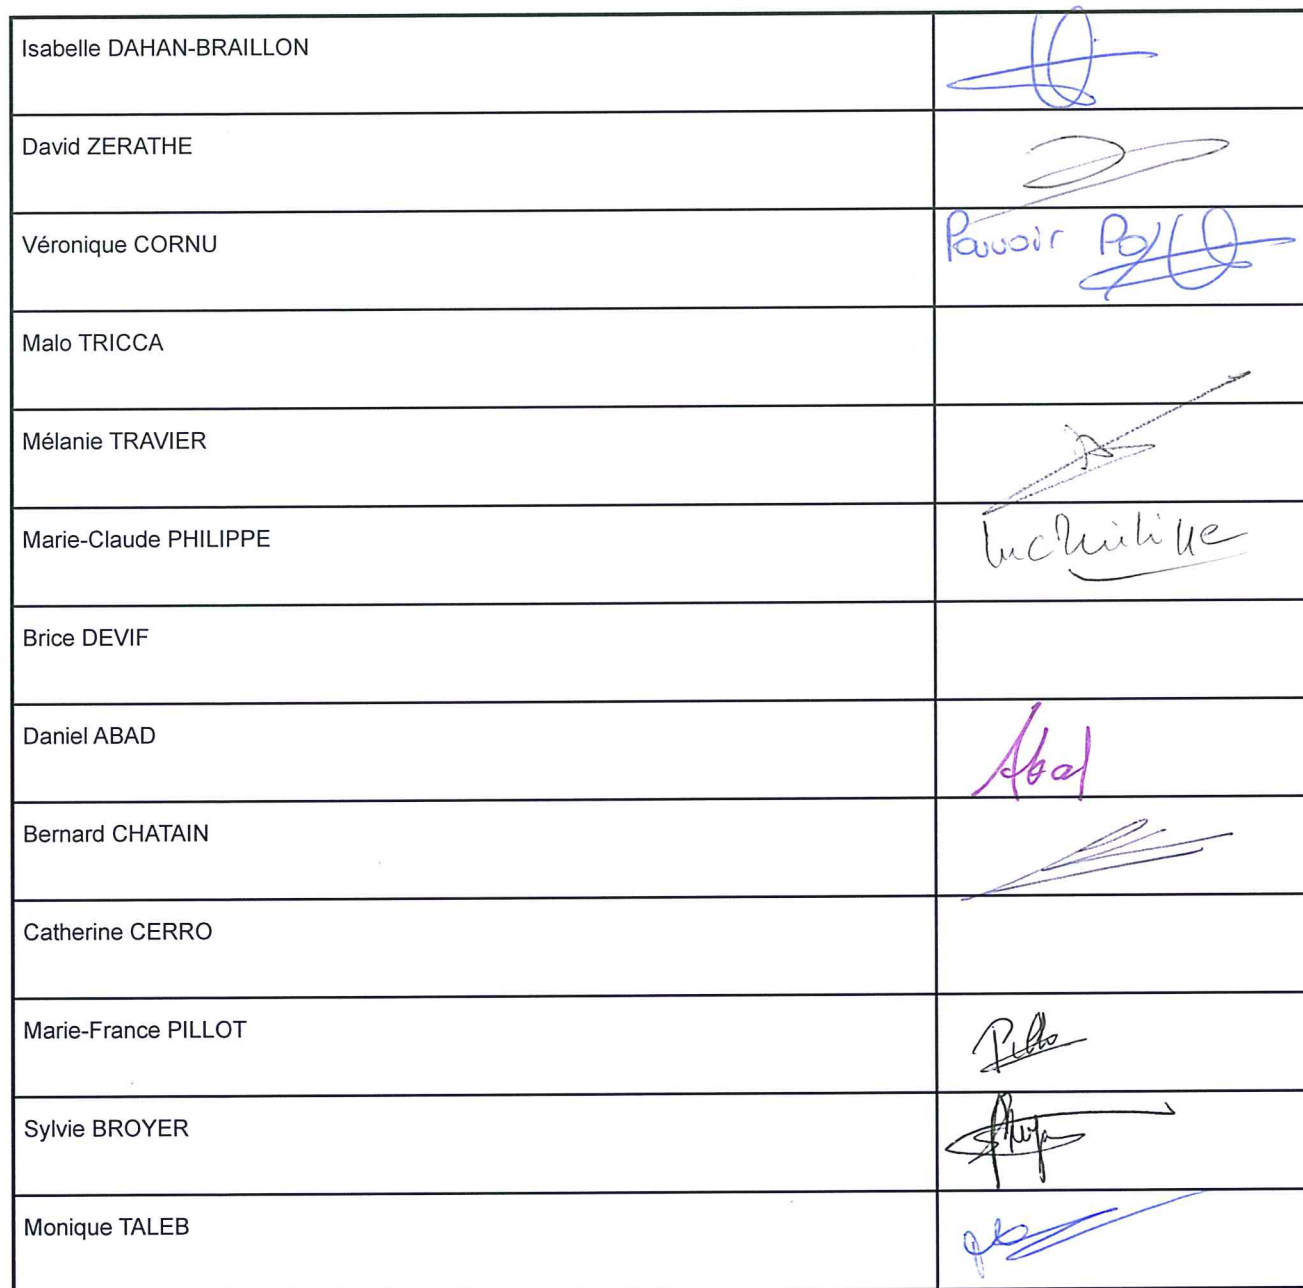 Isabelle DAHAN-BRAILLON
David ZERATHE
Véronique CORNU
Pouvoir
Malo TRICCA
Mélanie TRAVIER
Marie-Claude PHILIPPE
Brice DEVIF
Daniel ABAD
Abad
Bernard CHATAIN
Catherine CERRO
Marie-France PILLOT
Sylvie BROYER
Monique TALEB